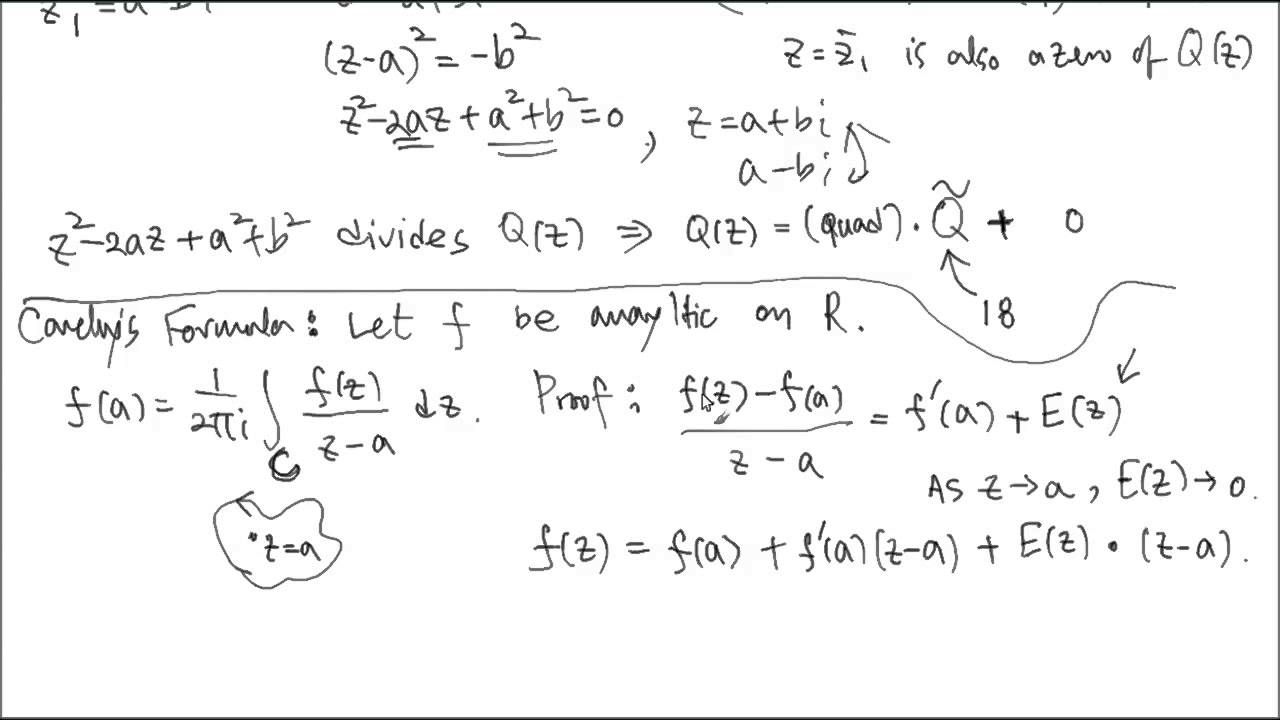 (z-a)² = -b²
z = z̄₁ is also a zero of Q(z)
z²-2az + a²+b² = 0, z = a+bi
a-bi
z²-2az+a²+b² divides Q(z) ⇒ Q(z) = (quad) · Q̃ + 0
18
Formula: Let f be anayltic on R.
f(a) = 1/2πi ∫_C f(z)/z-a dz.
Proof: f(z)-f(a)/z-a = f'(a) + E(z)
As z→a, E(z)→0.
z=a
f(z) = f(a) + f'(a)(z-a) + E(z) · (z-a).